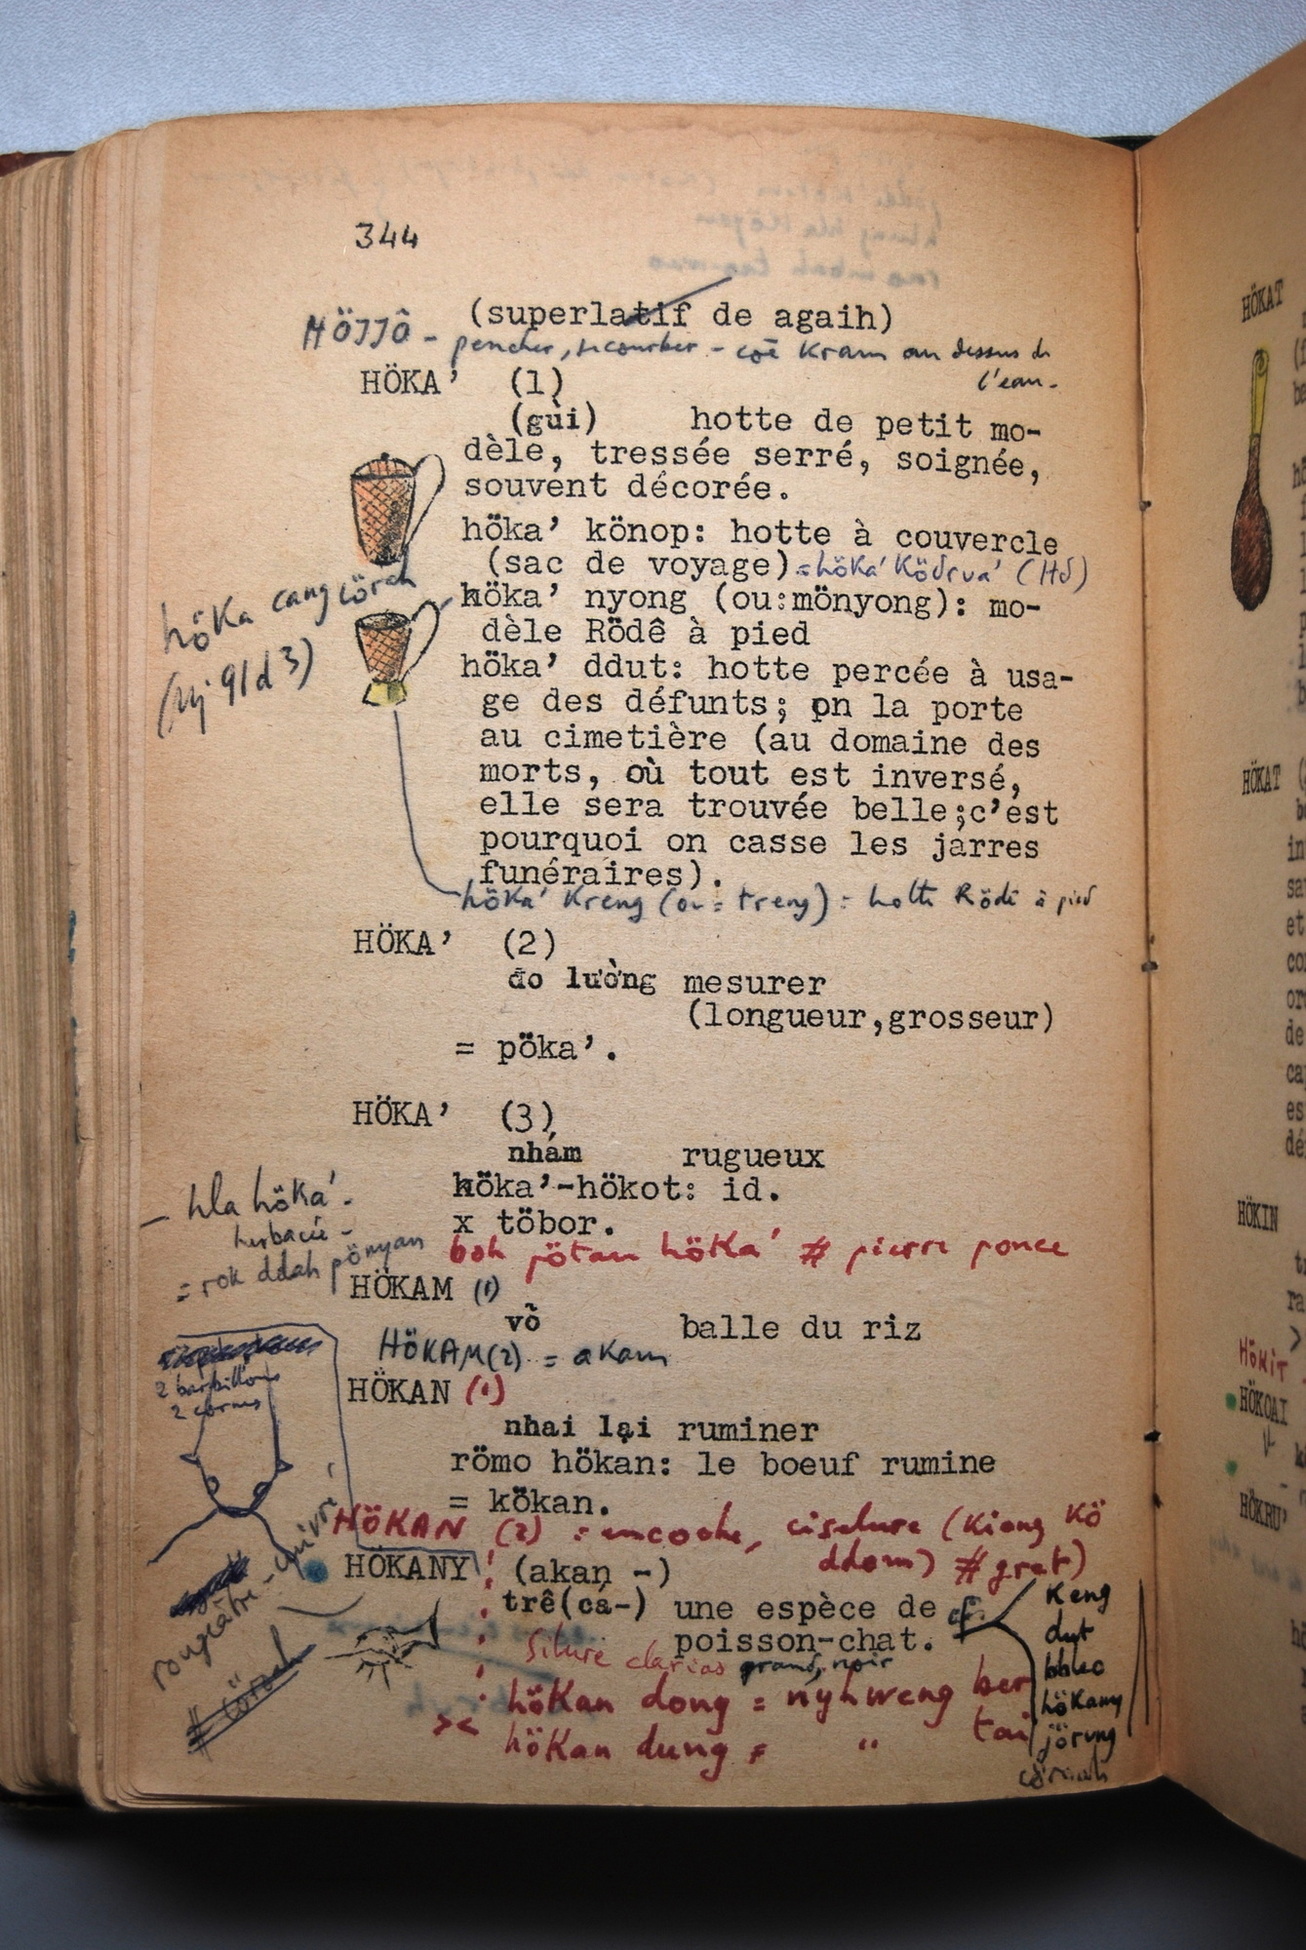 344
(superlatif de agaih)
HÖJJÔ - pencher, recourber - coē Kram au dessus de
l'eau.
HÖKA' (1)
(gùi) hotte de petit mo-
dèle, tressée serré, soignée,
souvent décorée.
höka' könop: hotte à couvercle
(sac de voyage) = höka' Ködrva' (Hd)
höKa cang
(Nj 91d3)
höka' nyong (ou:mönyong): mo-
dèle Rödê à pied
höka' ddut: hotte percée à usa-
ge des défunts; on la porte
au cimetière (au domaine des
morts, où tout est inversé,
elle sera trouvée belle;c'est
pourquoi on casse les jarres
funéraires).
höKa' Kreng (ou = treng) = hotte Rödê à pied
HÖKA' (2)
đo lường mesurer
(longueur,grosseur)
= pöka'.
HÖKA' (3)
nhám rugueux
höka'-hökot: id.
x töbor.
- hla höka' -
herbacée -
= rok ddah pönyan
boh pötau höKa' # pierre ponce
HÖKAM (1)
vỏ balle du riz
HÖKAM(2) = akam
HÖKAN (1)
nhai lại ruminer
römo hökan: le boeuf rumine
= kökan.
2 barbillons
2 cornes
HÖKAN (2) = encoche, ciselure (Kiong Kö
ddom) # gret)
HÖKANY (akan -)
trê(cá-) une espèce de
poisson-chat.
Silure clarias grand, noir
rougeâtre - cuivré
cf.
Keng
dut
bbleo
hökany
jörung
höKan dong = nyhweng ber
>< höKan dung = " tai
HÖKAT
HÖKAT
HÖKIN
HÖKIT
HÖKOAI
HÖKRU'